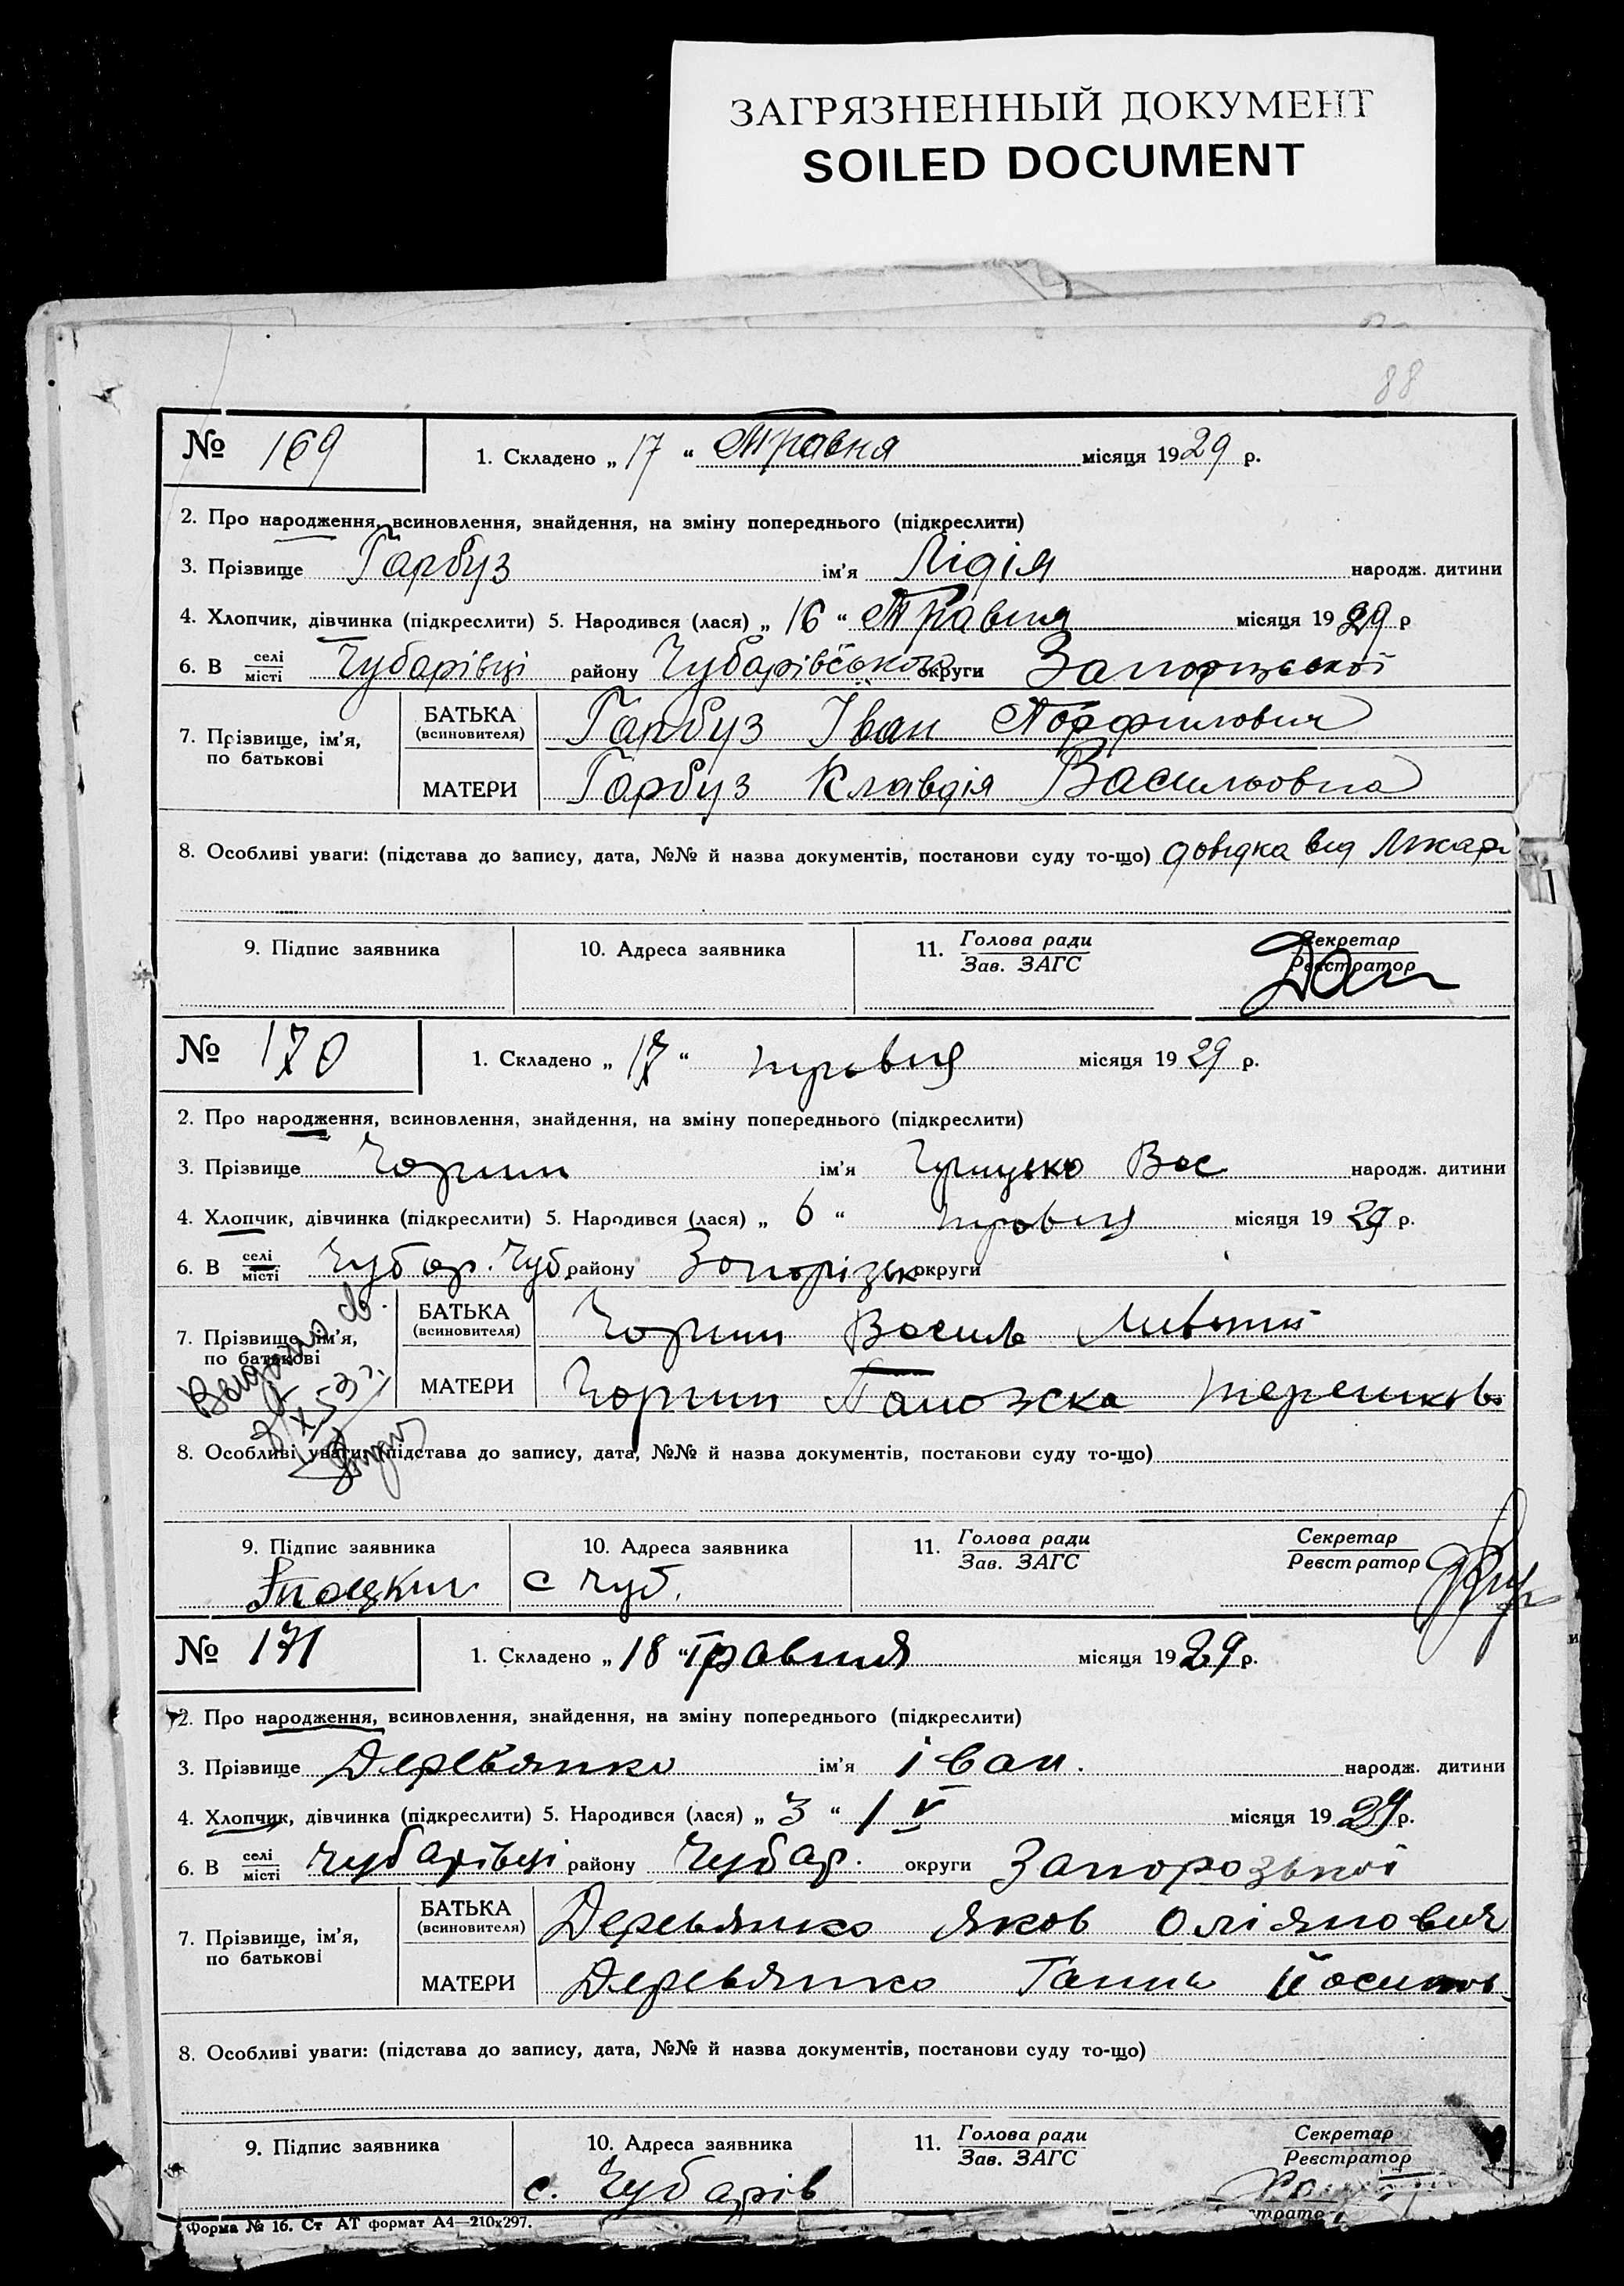 ЗАГРЯЗНЕННЫЙ ДОКУМЕНТ
SOILED DOCUMENT
88
№ 169 1. Складено „ 17 “ Травня місяця 1929 р.
2. Про народження, всиновлення, знайдення, на зміну попереднього (підкреслити)
3. Прізвище Гарбуз ім'я Лідія народж. дитини
4. Хлопчик, дівчинка (підкреслити) 5. Народився (лася) „ 16 “ Травня місяця 1929 р
6. В селі місті Чубарівці району Чубарівського округи
7. Прізвище, ім'я, по батькові
БАТЬКА (всиновителя) Гарбуз Іван
МАТЕРИ Гарбуз Клавдія Васильовна
8. Особливі уваги: (підстава до запису, дата, №№ й назва документів, постанови суду то-що) довідка від
9. Підпис заявника 10. Адреса заявника 11. Голова ради Зав. ЗАГС Секретар Реєстратор
№ 170 1. Складено „ 17 “ травня місяця 19 29 р.
2. Про народження, всиновлення, знайдення, на зміну попереднього (підкреслити)
3. Прізвище ім'я Грицько Вас народж. дитини
4. Хлопчик, дівчинка (підкреслити) 5. Народився (лася) „ 6 “ травня місяця 19 29 р.
6. В селі місті Чубар. Чуб. району Запорізьк округи
7. Прізвище, ім'я, по батькові
БАТЬКА (всиновителя) Василь
МАТЕРИ
8. Особливі уваги: (підстава до запису, дата, №№ й назва документів, постанови суду то-що)
9. Підпис заявника 10. Адреса заявника 11. Голова ради Зав. ЗАГС Секретар Реєстратор
с Чуб.
№ 171 1. Складено „ 18 “ травня місяця 19 29 р.
2. Про народження, всиновлення, знайдення, на зміну попереднього (підкреслити)
3. Прізвище Деревянко ім'я іван. народж. дитини
4. Хлопчик, дівчинка (підкреслити) 5. Народився (лася) „ 3 “ / V місяця 19 29 р.
6. В селі місті Чубарівці району Чубар. округи
7. Прізвище, ім'я, по батькові
БАТЬКА (всиновителя) Деревянко Яков
МАТЕРИ Деревянко Ганна
8. Особливі уваги: (підстава до запису, дата, №№ й назва документів, постанови суду то-що)
9. Підпис заявника 10. Адреса заявника 11. Голова ради Зав. ЗАГС Секретар Реєстратор
с. Чубарів
Форма № 16. Ст АТ формат А4—210х297.